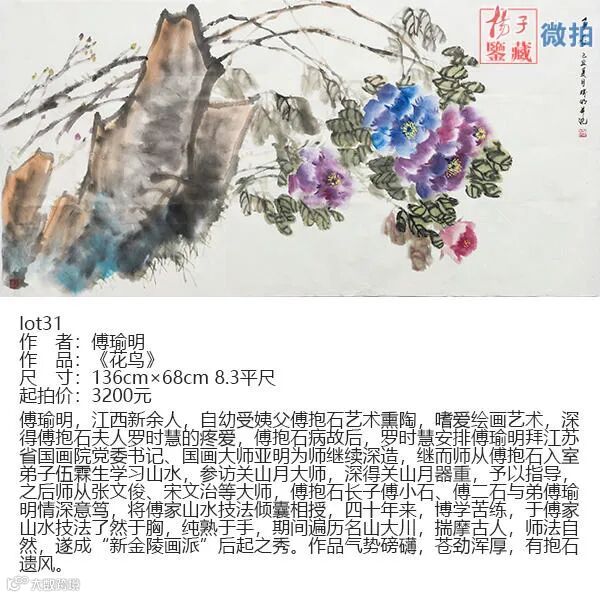 揚子
鑒藏
微拍
lot31
作 者：傅瑜明
作 品：《花鸟》
尺 寸：136cm×68cm 8.3平尺
起拍价：3200元
傅瑜明，江西新余人，自幼受姨父傅抱石艺术熏陶，嗜爱绘画艺术，深
得傅抱石夫人罗时慧的疼爱，傅抱石病故后，罗时慧安排傅瑜明拜江苏
省国画院党委书记、国画大师亚明为师继续深造，继而师从傅抱石入室
弟子伍霖生学习山水，参访关山月大师，深得关山月器重，予以指导，
之后师从张文俊、宋文治等大师，傅抱石长子傅小石、傅二石与弟傅瑜
明情深意笃，将傅家山水技法倾囊相授，四十年来，博学苦练，于傅家
山水技法了然于胸，纯熟于手，期间遍历名山大川，揣摩古人，师法自
然，遂成“新金陵画派”后起之秀。作品气势磅礴，苍劲浑厚，有抱石
遗风。
大数跨境